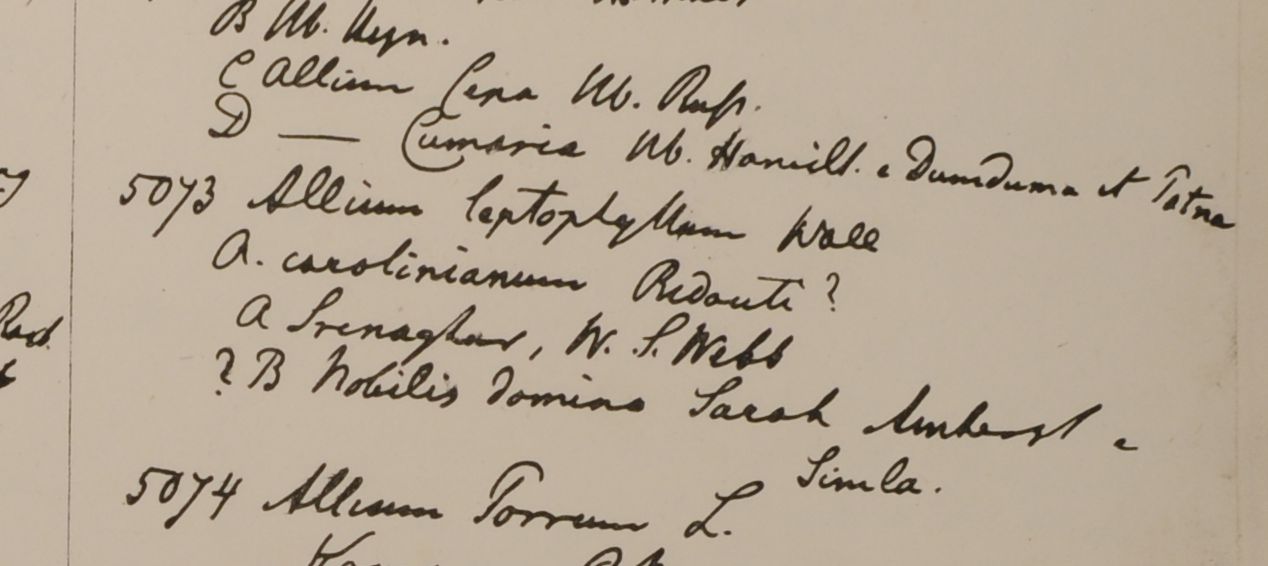 B Hb. Heyn.
C Allium Cepa Hb. Russ.
D — Cumaria Hb. Hamilt. e Dumduma et Patna
5073 Allium leptophyllum Wall
A. carolinianum Redouti?
A Srenaghur, W. S. Webb
? B Nobilis domina Sarah Amherst e
Simla.
5074 Allium Porrum L.